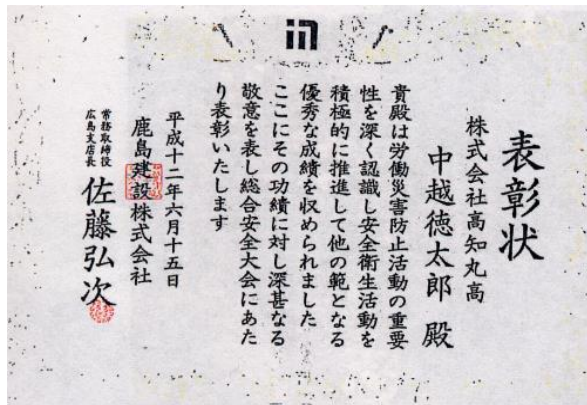 表彰状
株式会社高知丸高
中越徳太郎 殿
貴殿は労働災害防止活動の重要
性を深く認識し安全衛生活動を
積極的に推進して他の範となる
優秀な成績を収められました
ここにその功績に対し深甚なる
敬意を表し総合安全大会にあた
り表彰いたします
平成十二年六月十五日
鹿島建設株式会社
常務取締役
広島支店長
佐藤弘次